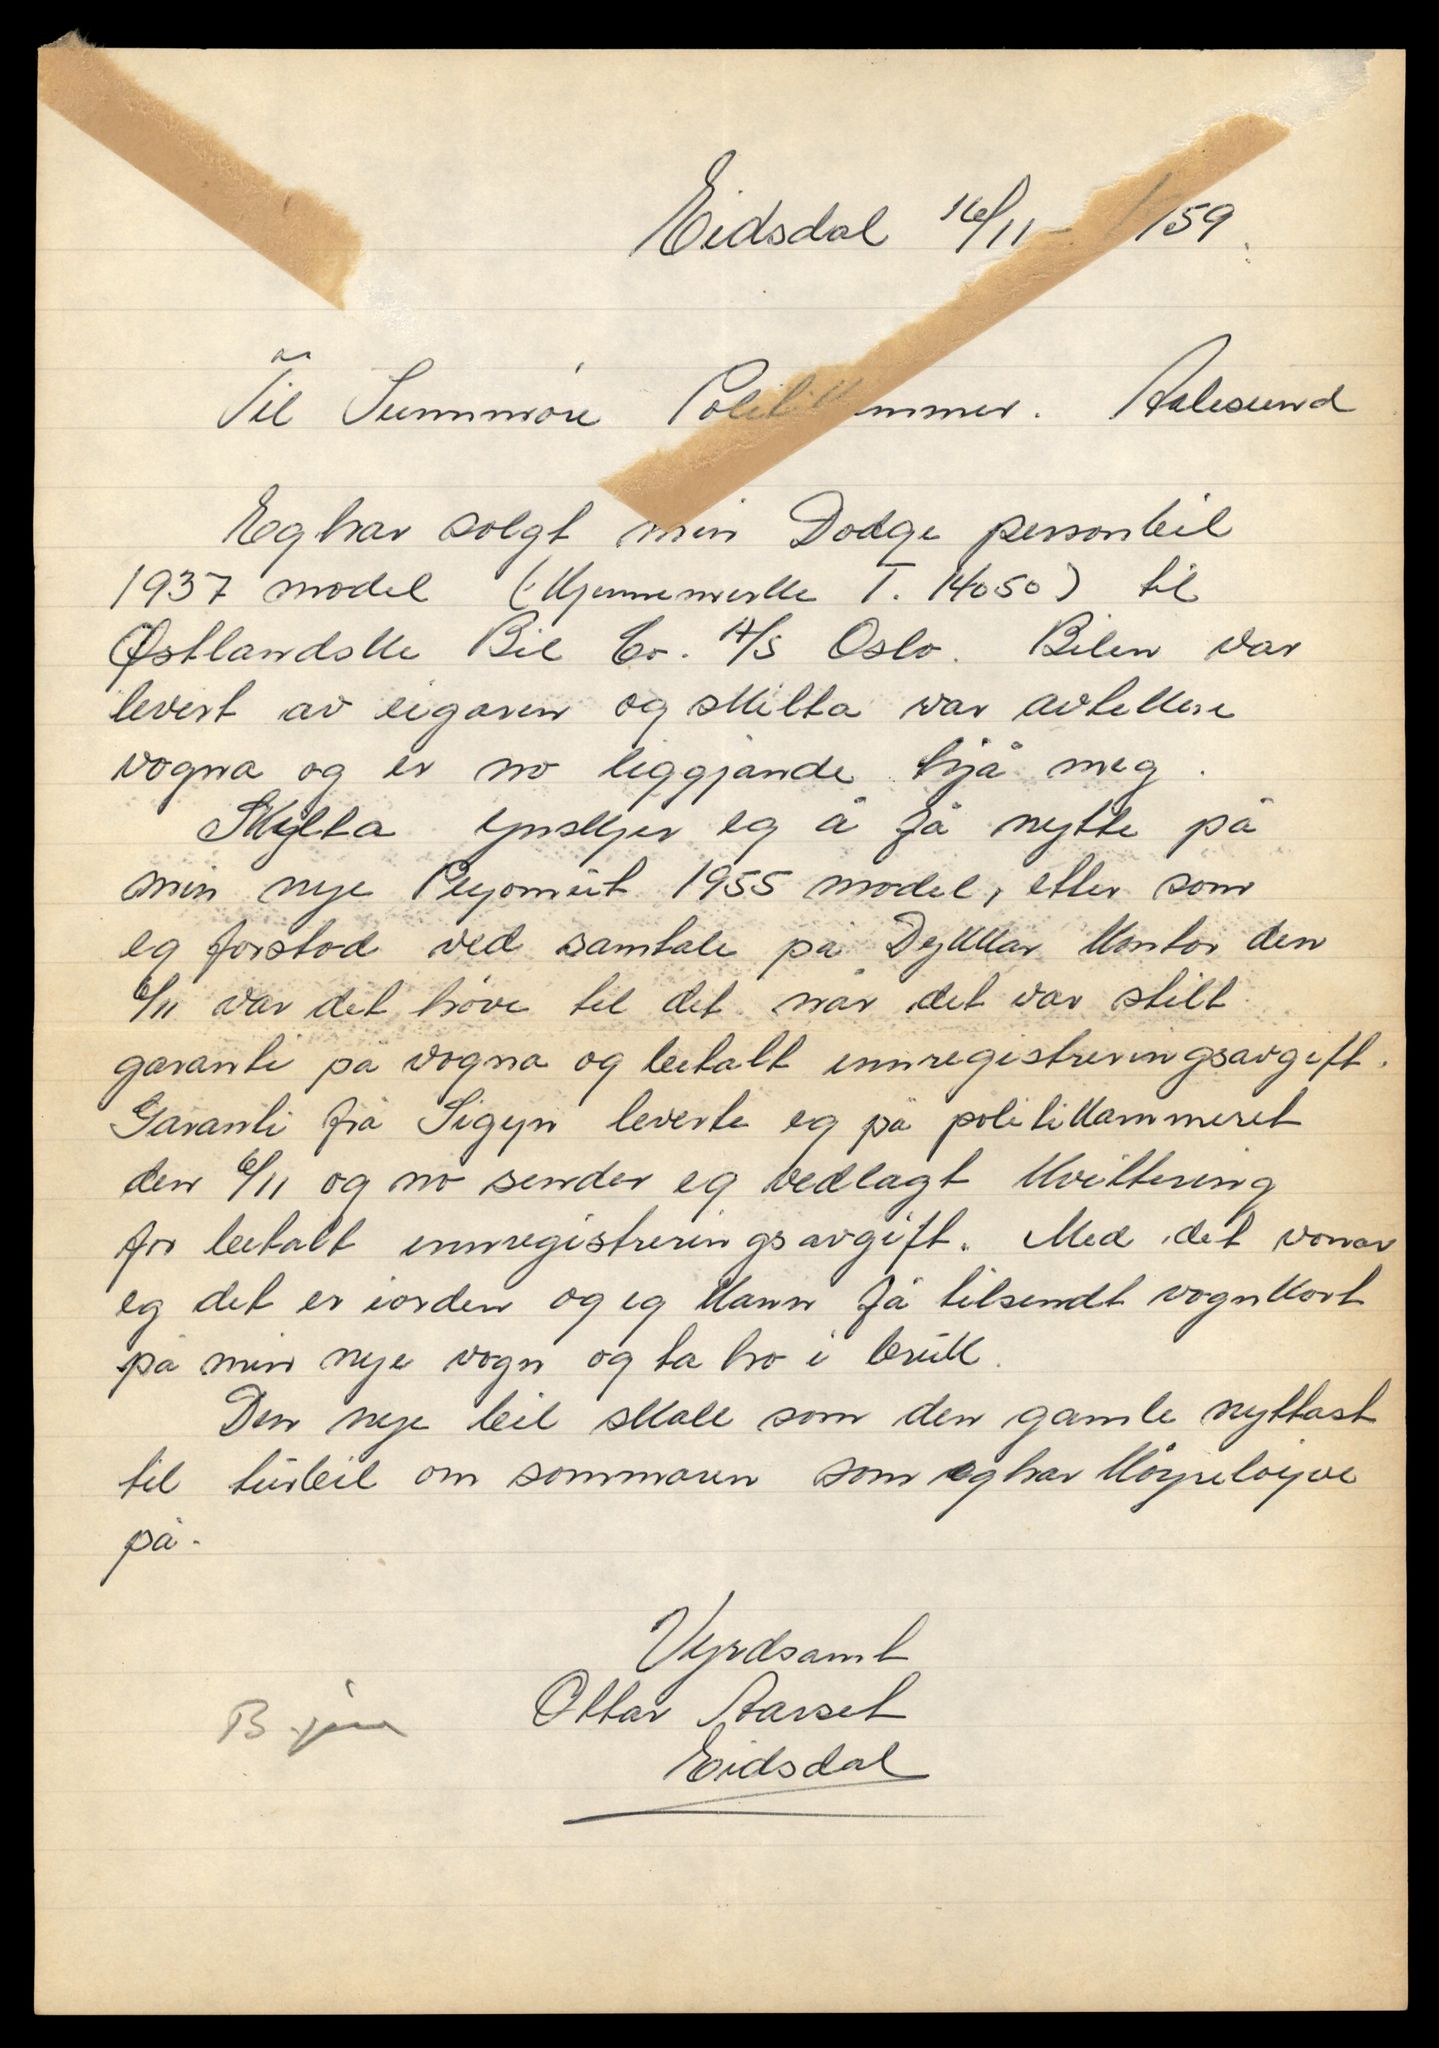 Eidsdal 16/11 - 1959.
Til Sunnmöre Politikammer. Aalesund
Eg har solgt min Dodge personbil
1937 model (Kjennemerke T. 14050) til
Østlandske Bil Co. A/S Oslo. Bilen var
levert av eigaren og skilta var avtekkne
vogna og er no liggjande hjå meg.
Skylta ynskjer eg å få nytte på
min nye Peyomeit 1955 model, etter som
eg forstod ved samtale på Dykkar kontor den
6/11 var det høve til det når det var stilt
garanti på vogna og betalt innregistreringsavgift.
Garanti frå Sigyn leverte eg på politikammeret
den 6/11 og no sender eg vedlagt kvittering
for betalt innregistreringsavgift. Med det vonar
eg det er iorden og eg kann få tilsendt vognkort
på min nye vogn og ta ho i bruk.
Den nye bil skall som den gamle nyttast
til turbil om sommaren som eg har köyreløyve
på.
Vyrdsamt
Ottar Aarset
Eidsdal